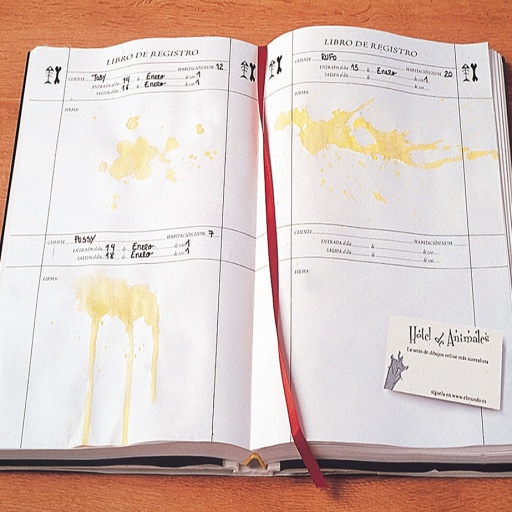 LIBRO DE REGISTRO
CLIENTE Toby HABITACIÓN NUM. 12
ENTRADA el día 14 de Enero de 200 1
SALIDA el día 16 de Enero de 200 1
FIRMA:
CLIENTE PUSSY HABITACIÓN NUM. 7
ENTRADA el día 14 de Enero de 200 1
SALIDA el día 18 de Enero de 200 1
FIRMA:
LIBRO DE REGISTRO
CLIENTE RUFO HABITACIÓN NUM. 20
ENTRADA el día 15 de Enero de 200 1
SALIDA el día de de 200
FIRMA:
CLIENTE HABITACIÓN NUM.
ENTRADA el día de de 200
SALIDA el día de de 200
FIRMA:
Hotel de Animales
La serie de dibujos online más surrealista
síguela en www.elmundo.es